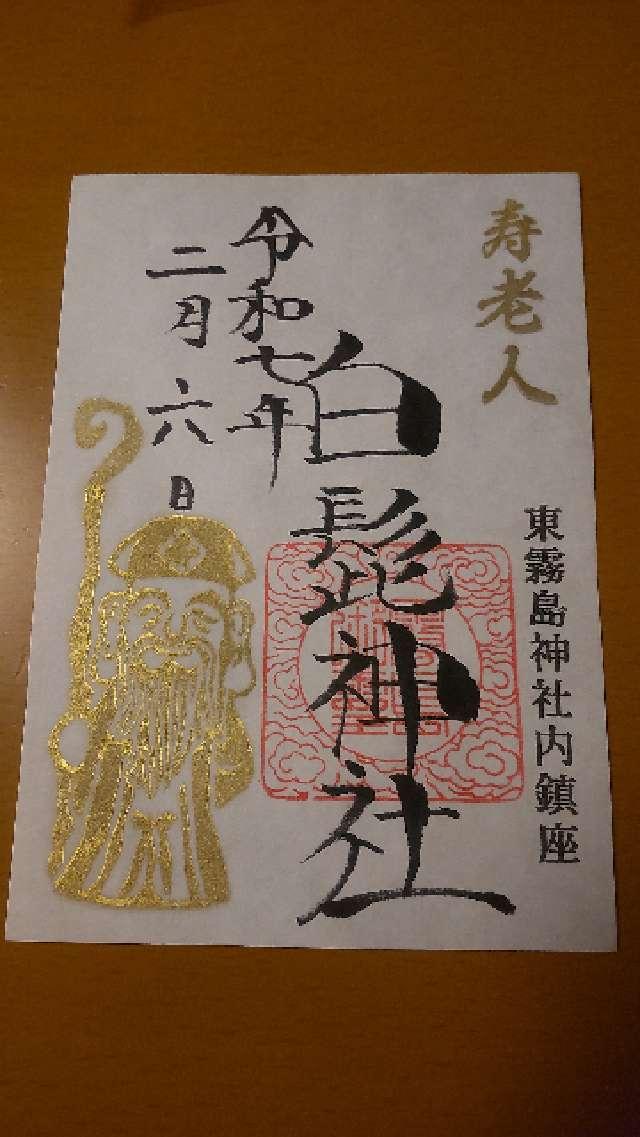 寿老人
東霧島神社内鎮座
白髭神社
令和七年
二月六日